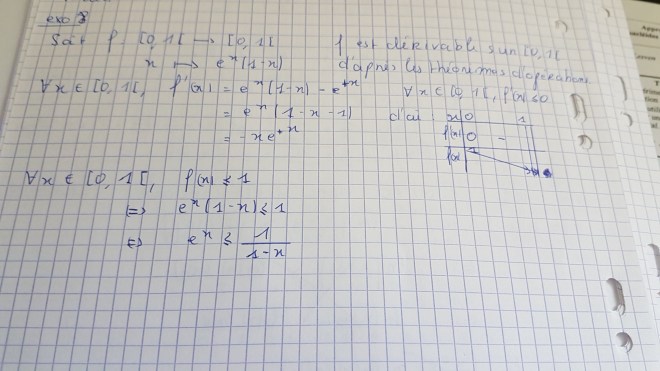 exo 8
Soit f : [0, 1[ → [0, 1[
x ↦ e^x(1-x)
f est dérivable sur [0, 1[
d'après les théorèmes d'opérations
∀x ∈ [0, 1[, f'(x) = e^x(1-x) - e^x
= e^x(1-x-1)
= -xe^x
∀x ∈ [0, 1[, f'(x) ≤ 0
d'où : x 0 1
f'(x) 0 -
f(x) 1
∀x ∈ [0, 1[, f(x) ≤ 1
⟺ e^x(1-x) ≤ 1
⟺ e^x ≤ 1/(1-x)